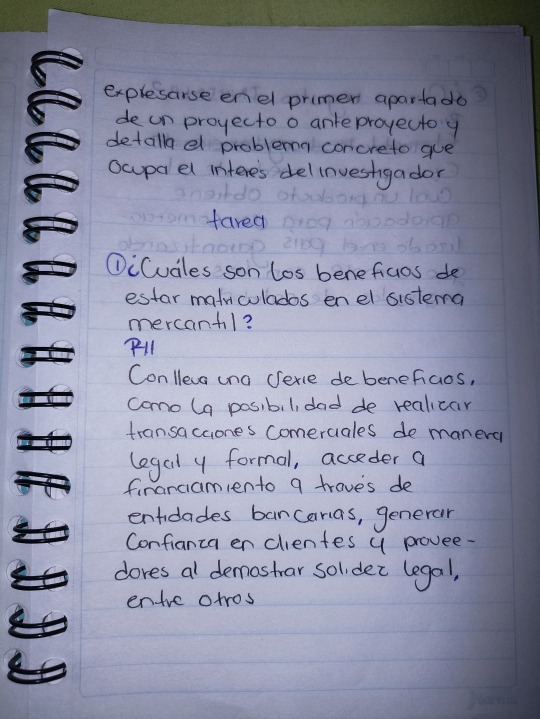 expresarse en el primer apartado
de un proyecto o anteproyecto y
detalla el problema concreto que
ocupa el interés del investigador
tarea
① ¿Cuáles son los beneficios de
estar matriculados en el sistema
mercantil?
R//
Conlleva una serie de beneficios,
como la posibilidad de realizar
transacciones comerciales de manera
legal y formal, acceder a
financiamiento a través de
entidades bancarias, generar
Confianza en clientes y provee-
dores al demostrar solidez legal,
entre otros